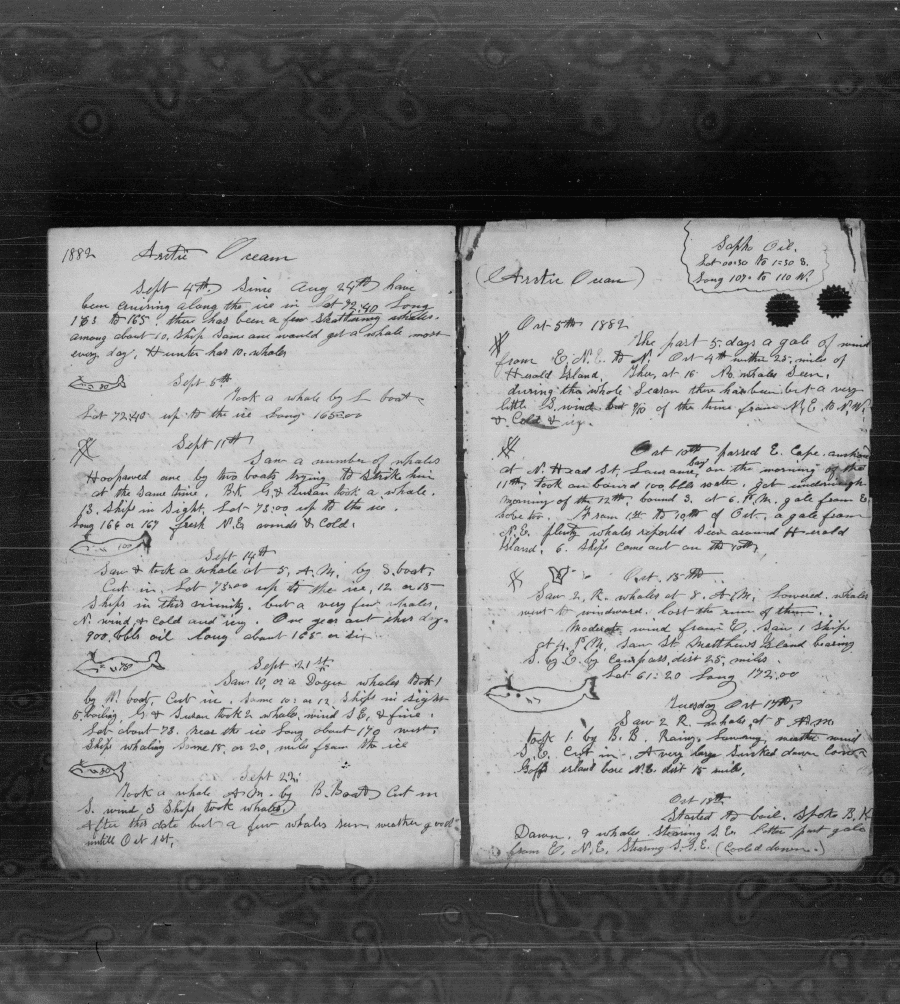 1882 Arctic Ocean
Sept 4th Since Aug 29th have
been cruising along the ice in Lat 72.40 Long
163 to 165. there has been a few skattering whales.
among about 10. Ship Sam ane would get a whale most
every day. Hunter has 10. whales
Sept 5th
Took a whale by L boat
Lat 72:40 up to the ice Long 165:00
Sept 11th
Saw a number of whales
one by two boats trying to strike him
at the same time. Bk G. & Susan took a whale.
13. Ship in Sight. Lat 73:00 up to the ice.
Long 166 or 167 fresh N.E winds & Cold.
100
Sept 14th
Saw & took a whale at 5. A.M. by S. boat
Cut in. Lat 73:00 up to the ice, 12 or 15
Ships in this vicinity. but a very few whales.
N. wind & Cold and icy. One year out this day.
900. bbls oil Long about 165 or six
70
Sept 21st
Saw 10, or a Dozen whales Took 1
by W. boat, Cut in, Some 10: or 12. Ships in Sight
5. boiling. G. & Susan took 2 whales, wind S.E. & fine.
Lat about 73. near the ice Long about 170 west.
Ships whaling Some 15. or 20, miles from the ice
80
Sept 22:
Took a whale A.M. by B. Boat Cut in
S. wind, 3 Ships took whales
After this date but a few whales seen weather good
untill Oct 1st,
Sapho Oil.
Lat 00:30 to 1:30 S.
Long 107. to 110 W.
(Arctic Ocean)
Oct 5th 1882
The past 5. days a gale of wind
from E.N.E. to N. Oct 4th within 25. miles of
Herald Island. Ther, at 15 No whales Seen,
during the whole Season ther has been but a very
little S. wind but 9/10 of the time from N.E. to N.W.
& Cold & icy.
Oct 10th passed E. Cape. anchored
at N. Head St. Lawrance bay on the morning of the
11th. took on board 100. bbls water. Got underweigh
morning of the 12th. bound S. at 6. P.M. gale from E.
hove too. From 1st to 10th of Oct. a gale from
N.E. plenty whales reported Seen around Herold
Island. 6. Ships come out on the 10th,
Oct. 15th
Saw 2, R. whales at 8. A.M. lowered, whales
went to windward. lost the run of them.
Moderate wind from E. Saw 1 Ship.
at 4. P.M. Saw St Matthews Island bearing
S. by E. by Compass, dist 25, miles.
Lat 61:20 Long 172:00
Tuesday Oct 17th
Saw 2 R. whales at 8 A.M
took 1. by B.B. Rainy, weather wind
S.E. Cut in. A very large
island bore N.E. dist 15 mile,
Oct 18th
Started to boil, Spoke B.K
Dawn, 9 whales. Stearing S.E. latter part gale
from E.N.E. Stearing S.S.E. (Cooled down.)